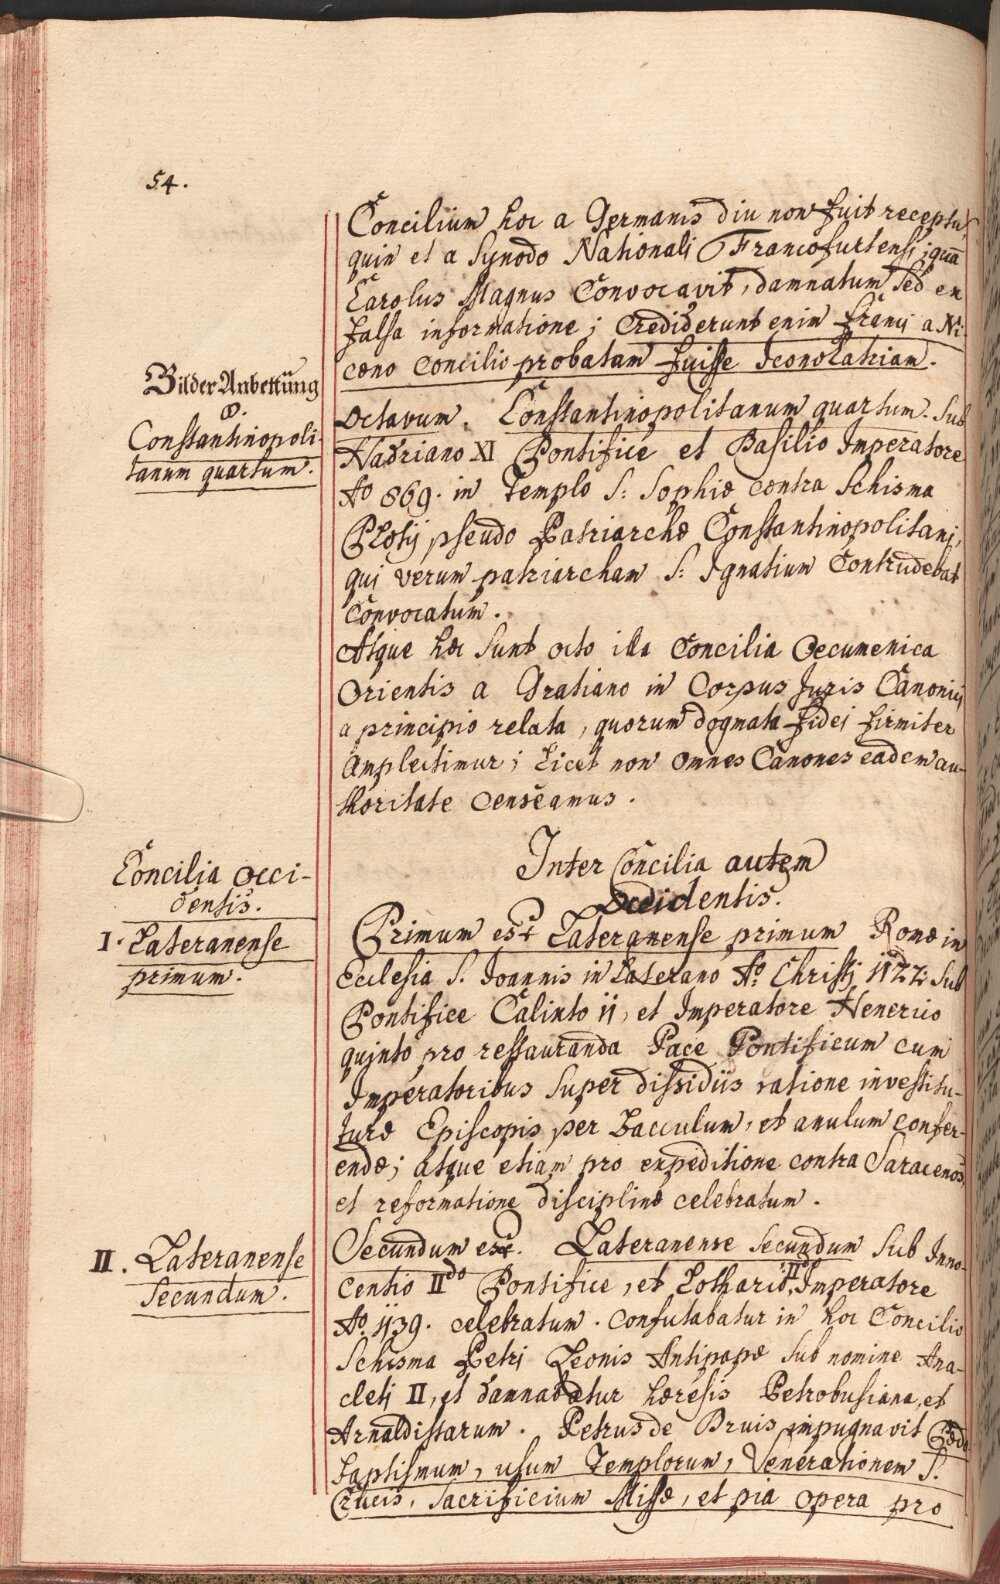 54.
Concilium hoc a Germanis diu non fuit receptū
quin et a Synodo Nationali Francofurtensi, quā
Carolus Magnus Convocavit, damnatum sed ex
falsa informatione; Crediderunt enim Franci a Ni-
cæno concilio probatam fuisse Iconolatriam.
Bilder Anbettüng
8
Constantinopoli-
tanum quartum.
Octavum. Constantinopolitanum quartum. Sub
Hadriano XI Pontifice et Basilio Imperatore
Ao 869. in Templo S: Sophiæ contra Schisma
Photij pseudo Patriarchæ Constantinopolitani,
qui verum patriarcham S: Ignatium Contrudebat
Convocatum.
Atque hæc sunt octo illa Concilia Oecumenica
Orientis a Gratiano in Corpus Juris Canonici
a principio relata, quorum dogmata fidei firmiter
Amplectimur; Licet non omnes Canones eadem au-
thoritate Censeamus.
Inter Concilia autem
Occidentis.
Concilia Occi-
dentis.
I. Lateranense
primum.
Primum est Lateranense primum Romæ in
Ecclesia S. Joannis in Laterano Ao: Christi 1122: Sub
Pontifice Calixto ii, et Imperatore Henerico
quinto pro restauranda Pace Pontificum cum
Imperatoribus super dissidiis ratione investitu-
turæ Episcopis per Bacculum, et anulum confer-
endæ; atque etiam pro expeditione contra Saracenos,
et reformatione disciplinæ celebratum.
II. Lateranense
Secundum.
Secundum est. Lateranense secundum sub Inno-
centio IIdo Pontifice, et Lothario II Imperatore
Ao. 1139. celebratum. Confutabatur in hoc Concilio
Schisma Petri Leonis Antipapæ sub nomine Ana-
cleti II, et damnabatur hæresis Petrobusiana, et
Arnaldistarum. Petrus de Bruis impugnavit
Baptismum, usum Templorum, Venerationem S.
Crucis, Sacrificium Missæ, et pia opera pro